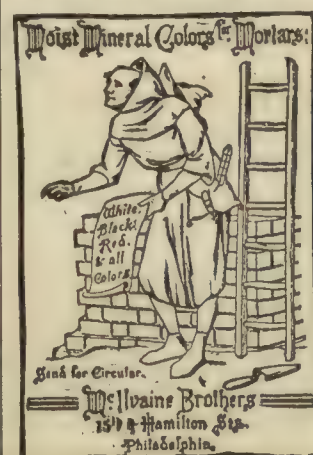 Moist Mineral Colors for Mortars:
White.
Black.
Red.
& all
Colors
Send for Circular.
McIlvaine Brothers
15th & Hamilton Sts.
Philadelphia.